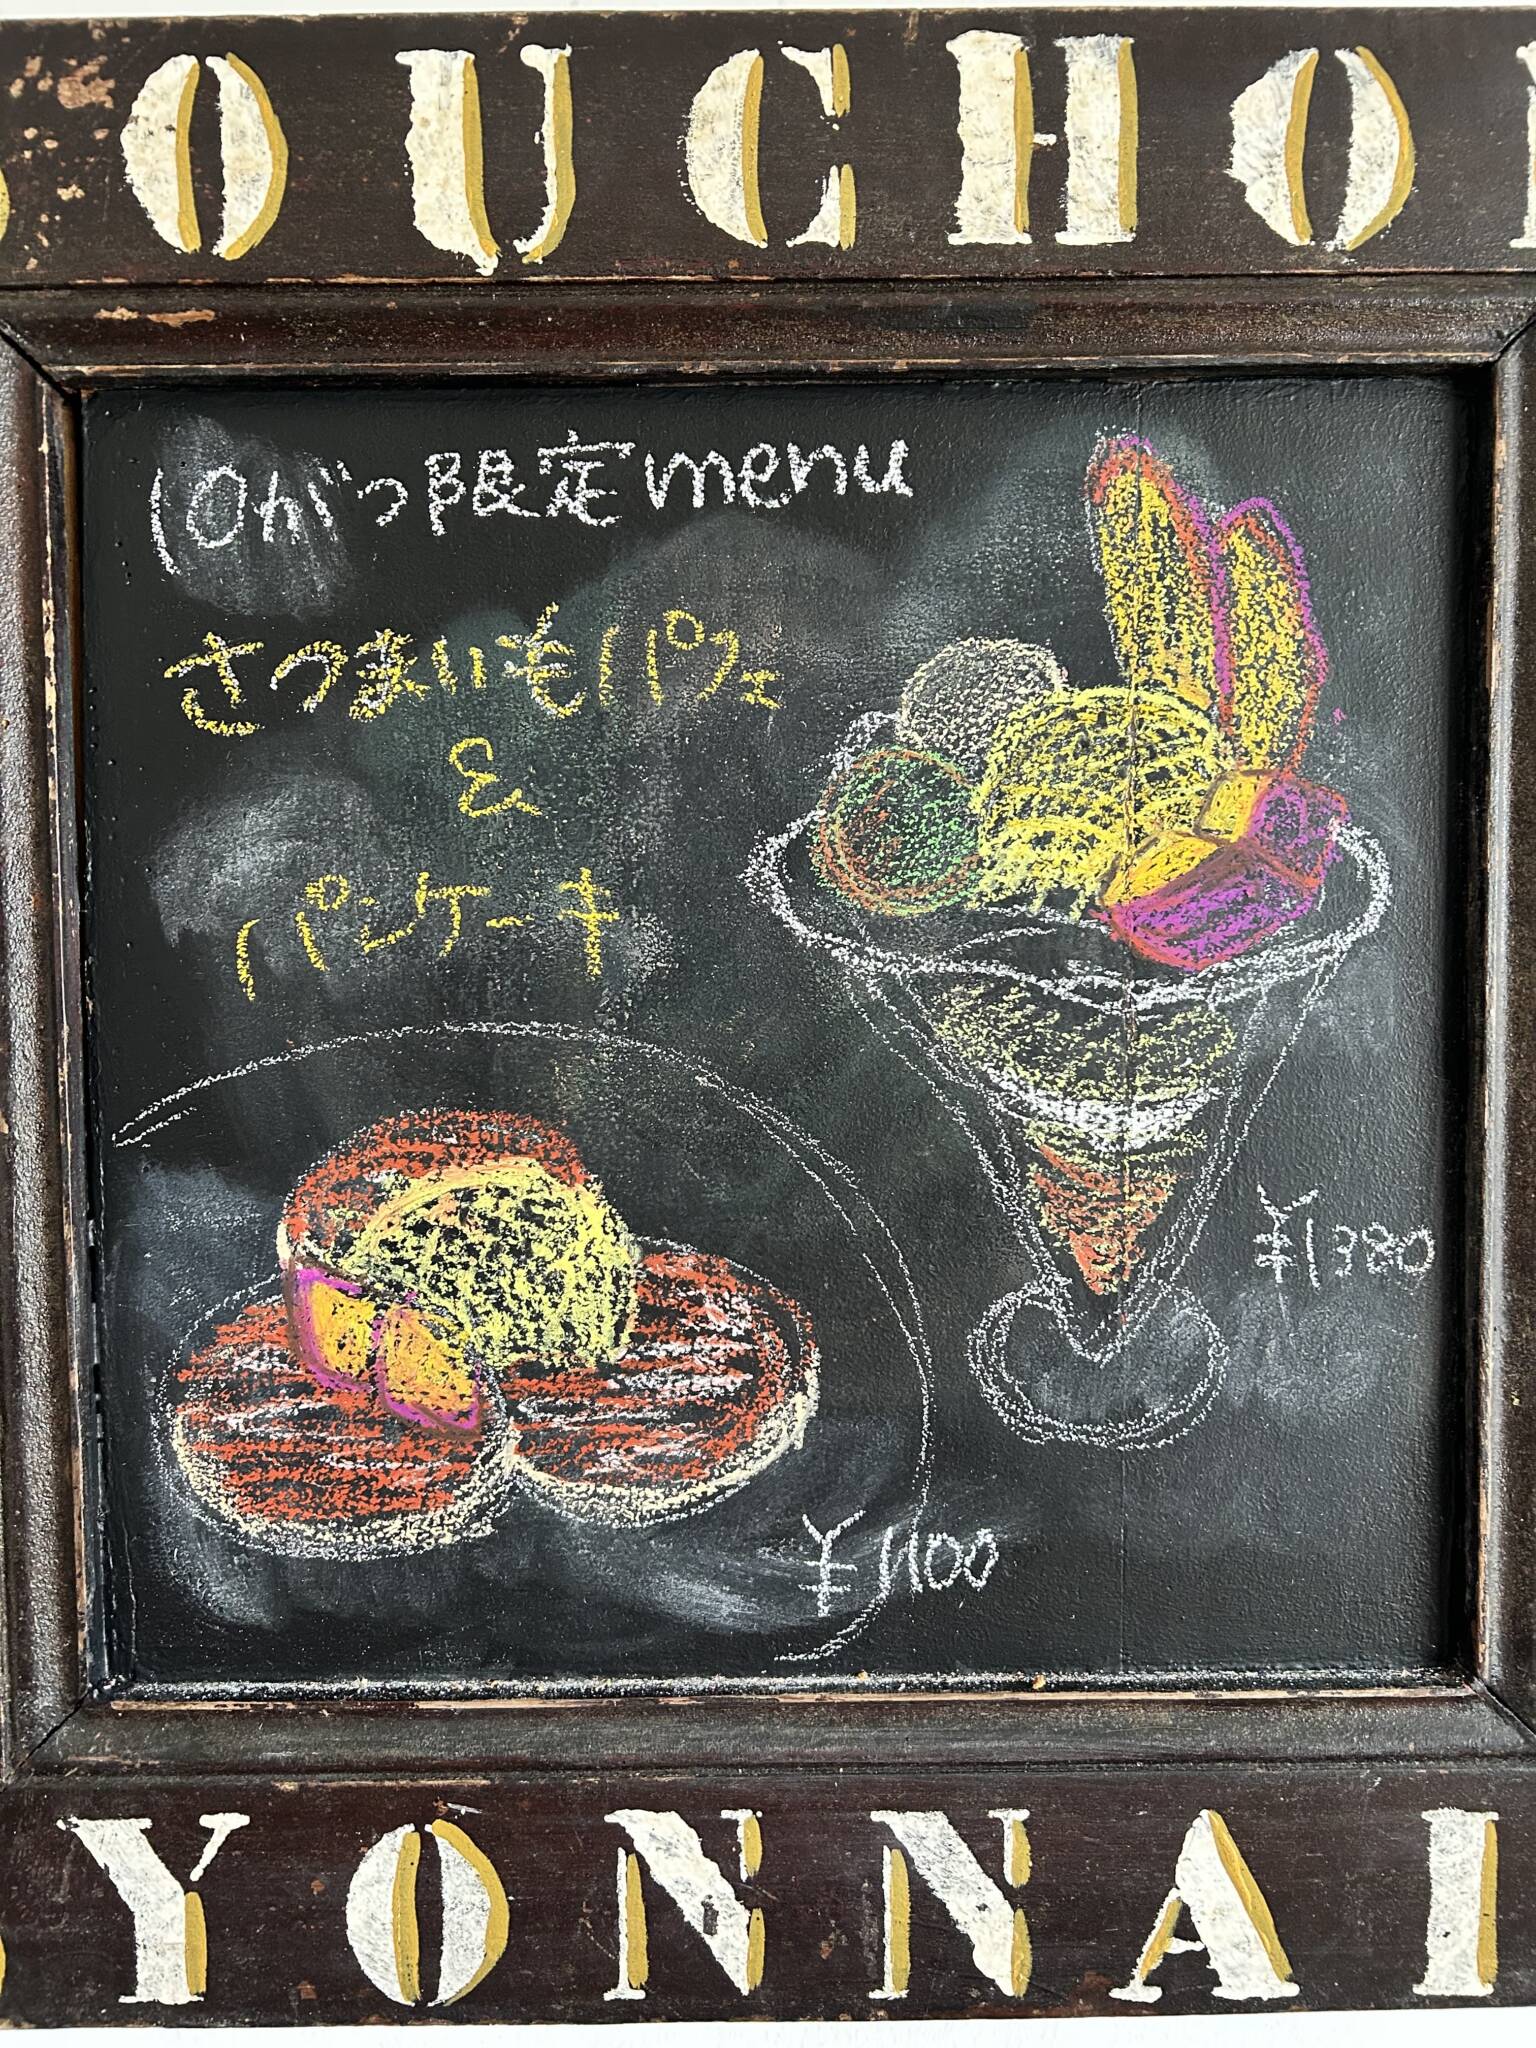 OUCHO
10がつ限定menu
さつまいもパフェ
&
パンケーキ
¥1380
¥1100
YONNAI